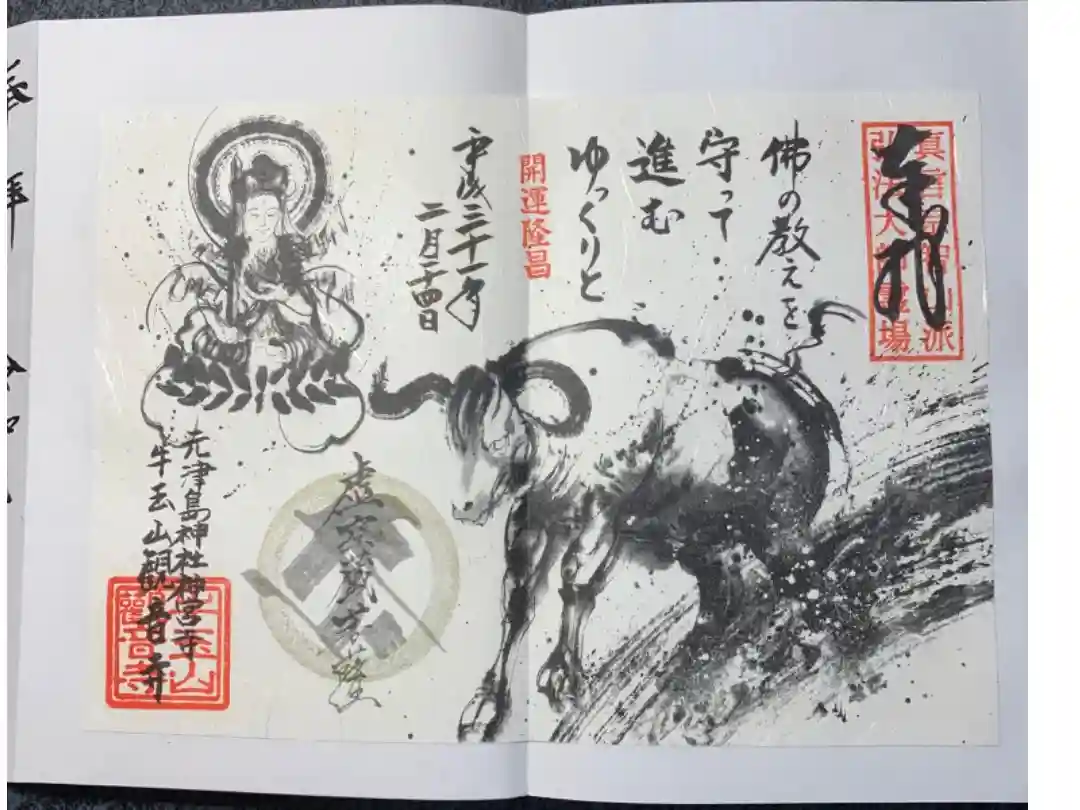 真言宗智山派
弘法大師霊場
奉拝
佛の教えを
守って・・・
進む
ゆっくりと
開運隆昌
平成三十一年
二月二十四日
虚空蔵菩薩
元津島神社神宮寺
牛玉山観音寺
牛玉山
觀音寺
奉拝
令和